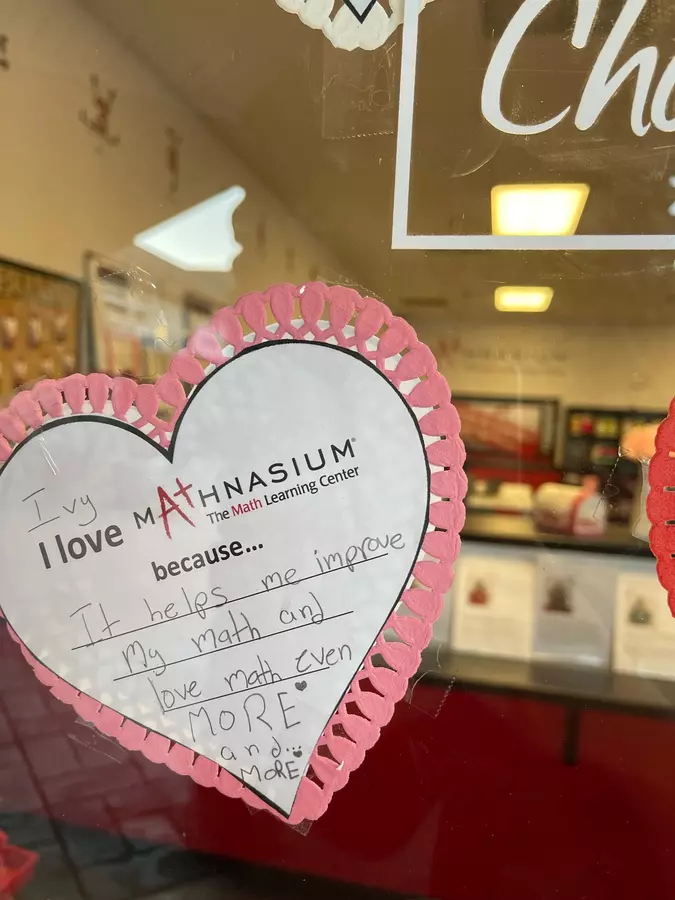 Cho
Ivy
I love MATHNASIUM®
The Math Learning Center
because...
It helps me improve
my math and
love math even
MORE
and..
MORE